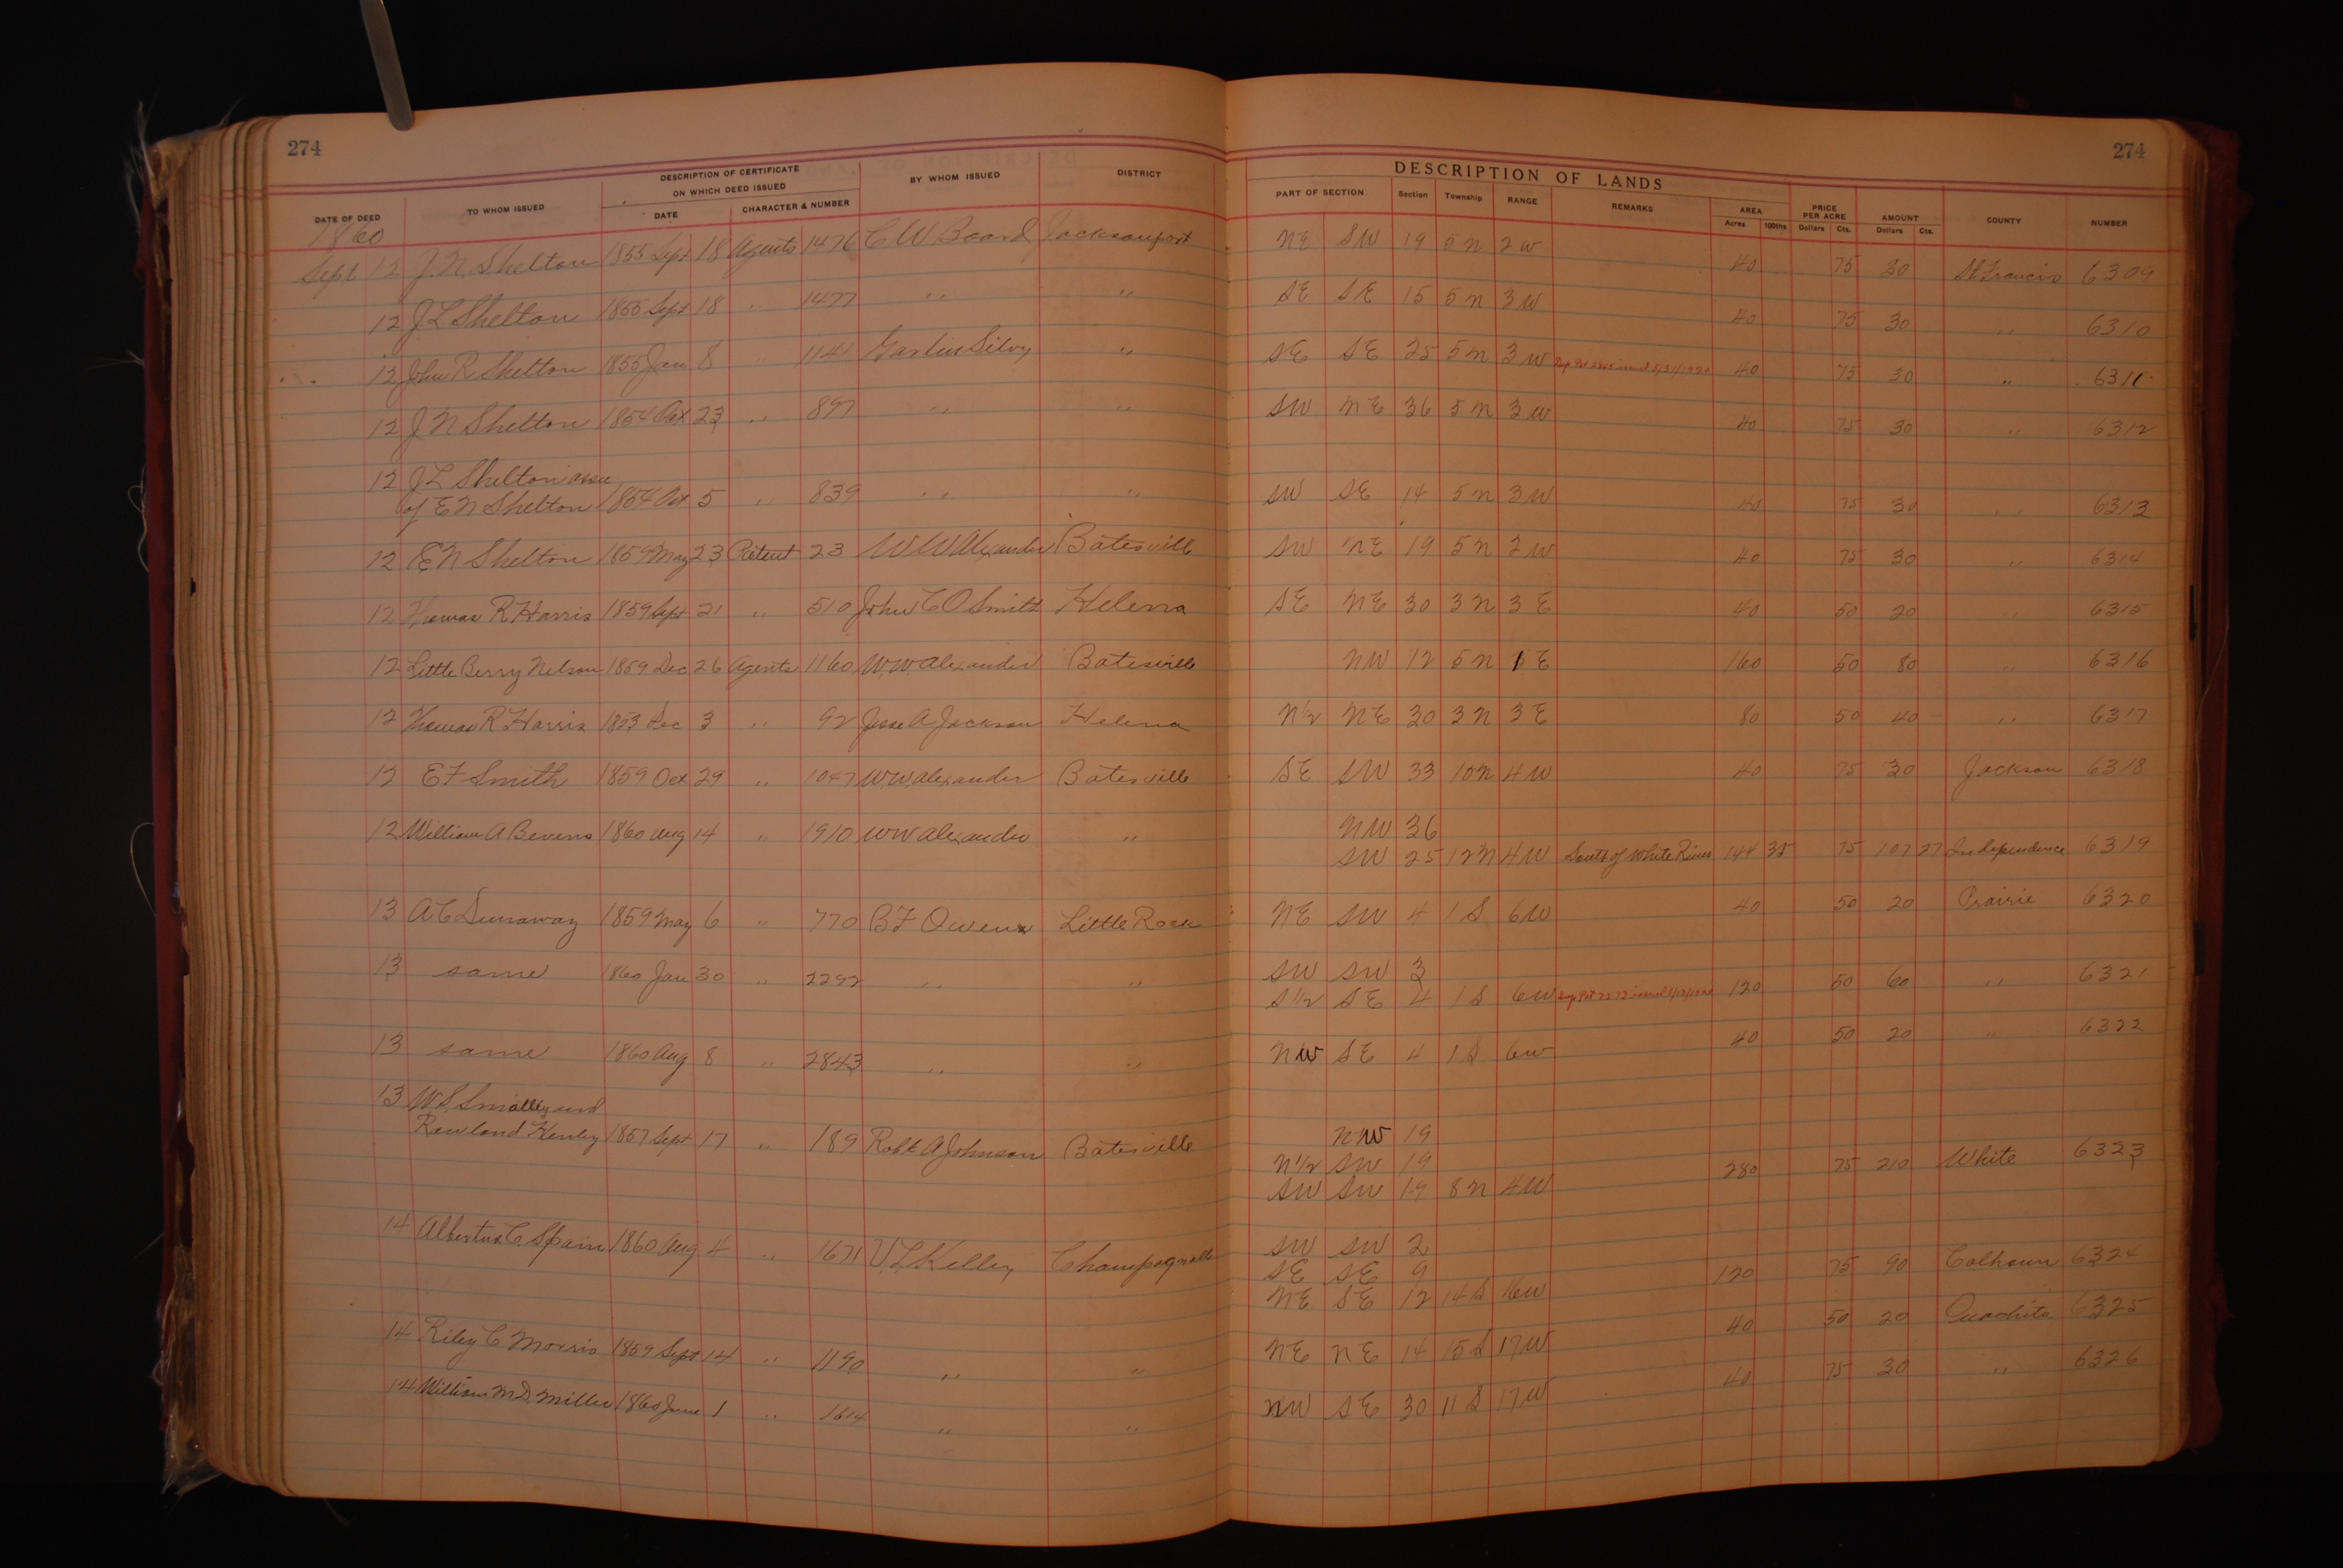 274
274
DESCRIPTION OF LANDS
DATE OF DEED TO WHOM ISSUED DESCRIPTION OF CERTIFICATE ON WHICH DEED ISSUED DATE CHARACTER & NUMBER BY WHOM ISSUED DISTRICT PART OF SECTION Section Township RANGE REMARKS AREA Acres 100ths PRICE PER ACRE Dollars Cts. AMOUNT Dollars Cts. COUNTY NUMBER
1860
Sept 12 J. N. Shelton 1855 Sept 18 Agents 1476 C W Board Jacksonport NE SW 19 5 N 2 W 40 75 30 St Francis 6309
12 J L Shelton 1855 Sept 18 " 1477 " " SE SE 15 5 N 3 W 40 75 30 " 6310
12 John R Shelton 1855 Jan 8 " 1141 " SE SE 25 5 N 3 W 40 75 30 " 6311
12 J N Shelton 1854 Oct 23 " 897 " " SW NE 36 5 N 3 W 40 75 30 " 6312
12 J L Shelton assee
of E N Shelton 1854 Oct 5 " 839 " " SW SE 14 5 N 3 W 40 75 30 " 6313
12 E N Shelton 1859 May 23 Patent 23 W W Alexander Batesville SW NE 19 5 N 2 W 40 75 30 " 6314
12 Thomas R Harris 1859 Sept 21 " 510 John C O Smith Helena SE NE 30 3 N 3 E 40 50 20 " 6315
12 Little Berry Nelson 1859 Dec 26 Agents 1160 W. W. Alexander Batesville NW 12 5 N 1 E 160 50 80 " 6316
12 Thomas R Harris 1853 Dec 3 " 92 Jesse A Jackson Helena N½ NE 30 3 N 3 E 80 50 40 " 6317
12 E F Smith 1859 Oct 29 " 1047 W W Alexander Batesville SE SW 33 10 N 4 W 40 75 30 Jackson 6318
12 William A Bevens 1860 Aug 14 " 1910 W W Alexander " NW 36
SW 25 12 N 4 W South of White River 144 35 75 107 27 Independence 6319
13 A C Dunaway 1859 May 6 " 770 B F Owens Little Rock NE SW 4 1 S 6 W 40 50 20 Prairie 6320
13 same 1860 Jan 30 " 2292 " " SW SW 3
S½ SE 4 1 S 6 W 120 50 60 " 6321
13 same 1860 Aug 8 " 2843 " " NW SE 4 1 S 6 W 40 50 20 " 6322
13 W. S. Smalley and
Rowland Henley 1857 Sept 17 " 189 Robt A Johnson Batesville NW 19
N½ SW 19
SW SW 19 8 N 4 W 280 75 210 White 6323
14 Albertus C. Spain 1860 Aug 4 " 1671 V. L. Kelley Champagnolle SW SW 2
SE SE 9
NE SE 12 14 S 16 W 120 75 90 Calhoun 6324
14 Riley C Morris 1859 Sept 14 " 1190 " " NE NE 14 15 S 17 W 40 50 20 Ouachita 6325
14 William M D. Miller 1860 June 1 " 1614 " " NW SE 30 11 S 17 W 40 75 30 " 6326